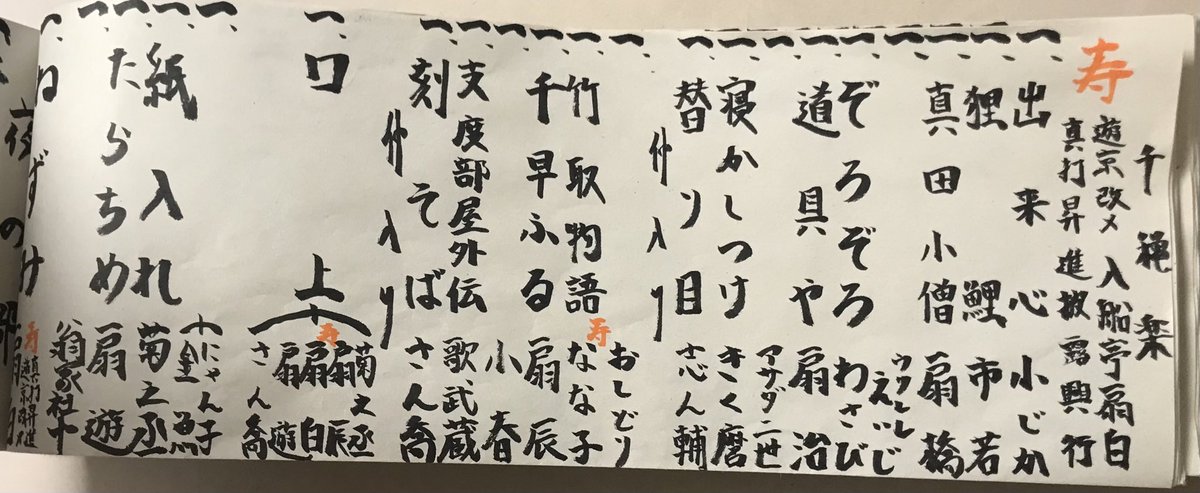 千穐楽
寿
遊京改メ 入船亭扇白
真打昇進披露興行
一、出来心 小じか
一、狸鯉 市若
一、真田小僧 扇橋
一、ウクレレえいじ
一、ぞろぞろ わさび
一、道具や 扇治
一、アサダ二世
一、寝かしつけ きく麿
一、替り目 志ん輔
仲入り
一、おしどり
一、竹取物語 寿 なな子
一、千早ふる 扇辰
一、小春
一、支度部屋外伝 歌武蔵
一、刻そば さん喬
仲入り
一、口上
菊之丞
扇辰
寿 扇白
扇遊
さん喬
一、にゃん子 金魚
一、紙入れ 菊之丞
一、たらちめ 扇遊
一、翁家社中
一、ねずみ